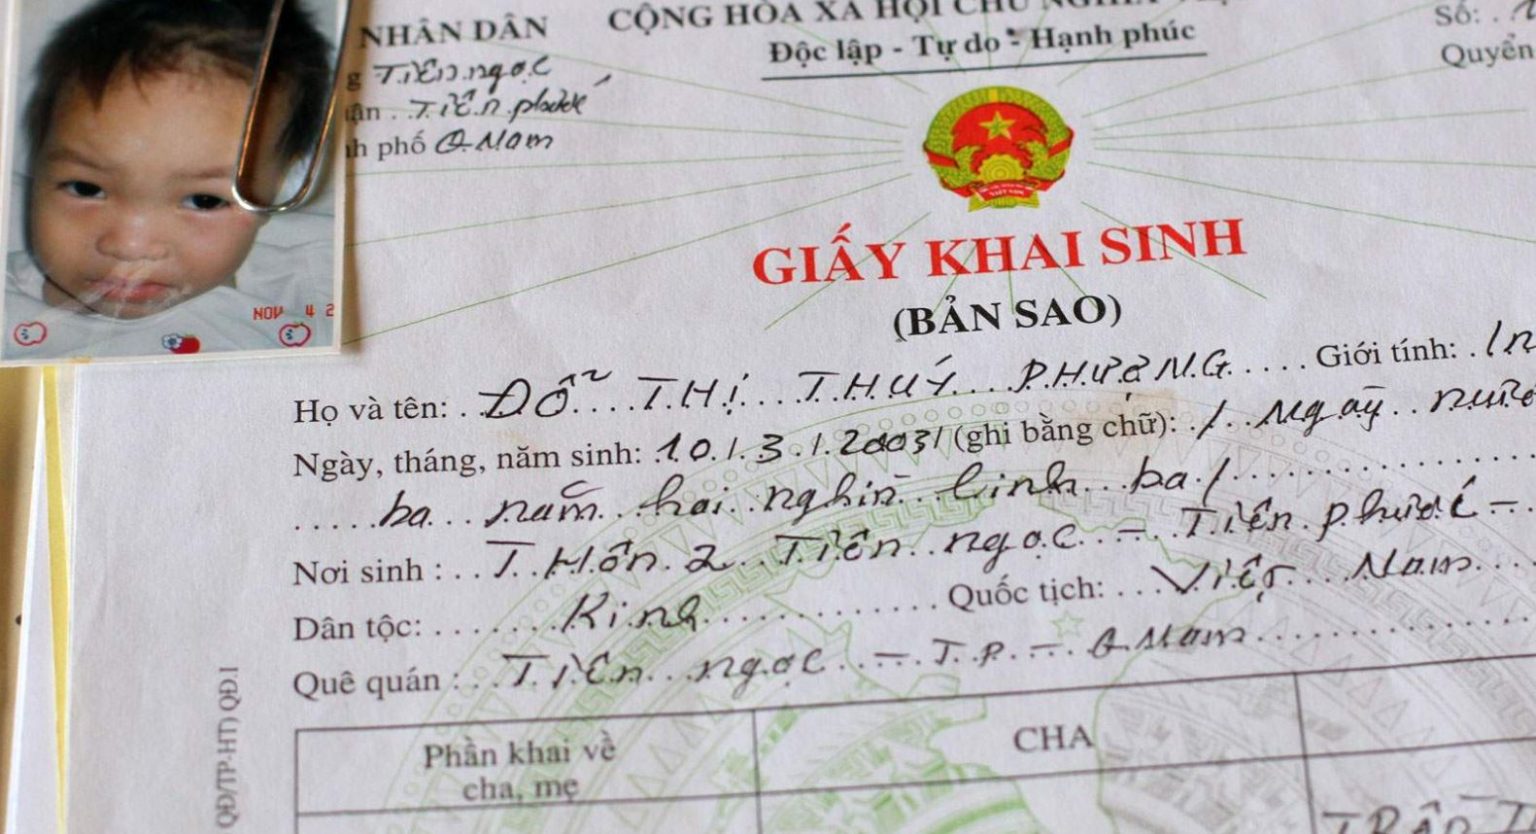 NHÂN DÂN
Tiên ngọc
Tiên phước
phố Q Nam
CỘNG HÒA XÃ HỘI CHỦ NGHĨA
Độc lập - Tự do - Hạnh phúc
Số:
Quyển
NOV 4 2
GIẤY KHAI SINH
(BẢN SAO)
Họ và tên: ĐỖ THỊ THUÝ PHƯỢNG Giới tính:
Ngày, tháng, năm sinh: 10/3/2003/ (ghi bằng chữ): / Ngày
ba năm hai nghìn linh ba/
Nơi sinh : THôn 2 Tiên ngọc - Tiên phước -
Dân tộc: Kinh Quốc tịch: Việt Nam
Quê quán : Tiên ngọc - T.P - Q Nam
QĐ/TP-HT) QĐ.1
Phần khai về
cha, mẹ
CHA